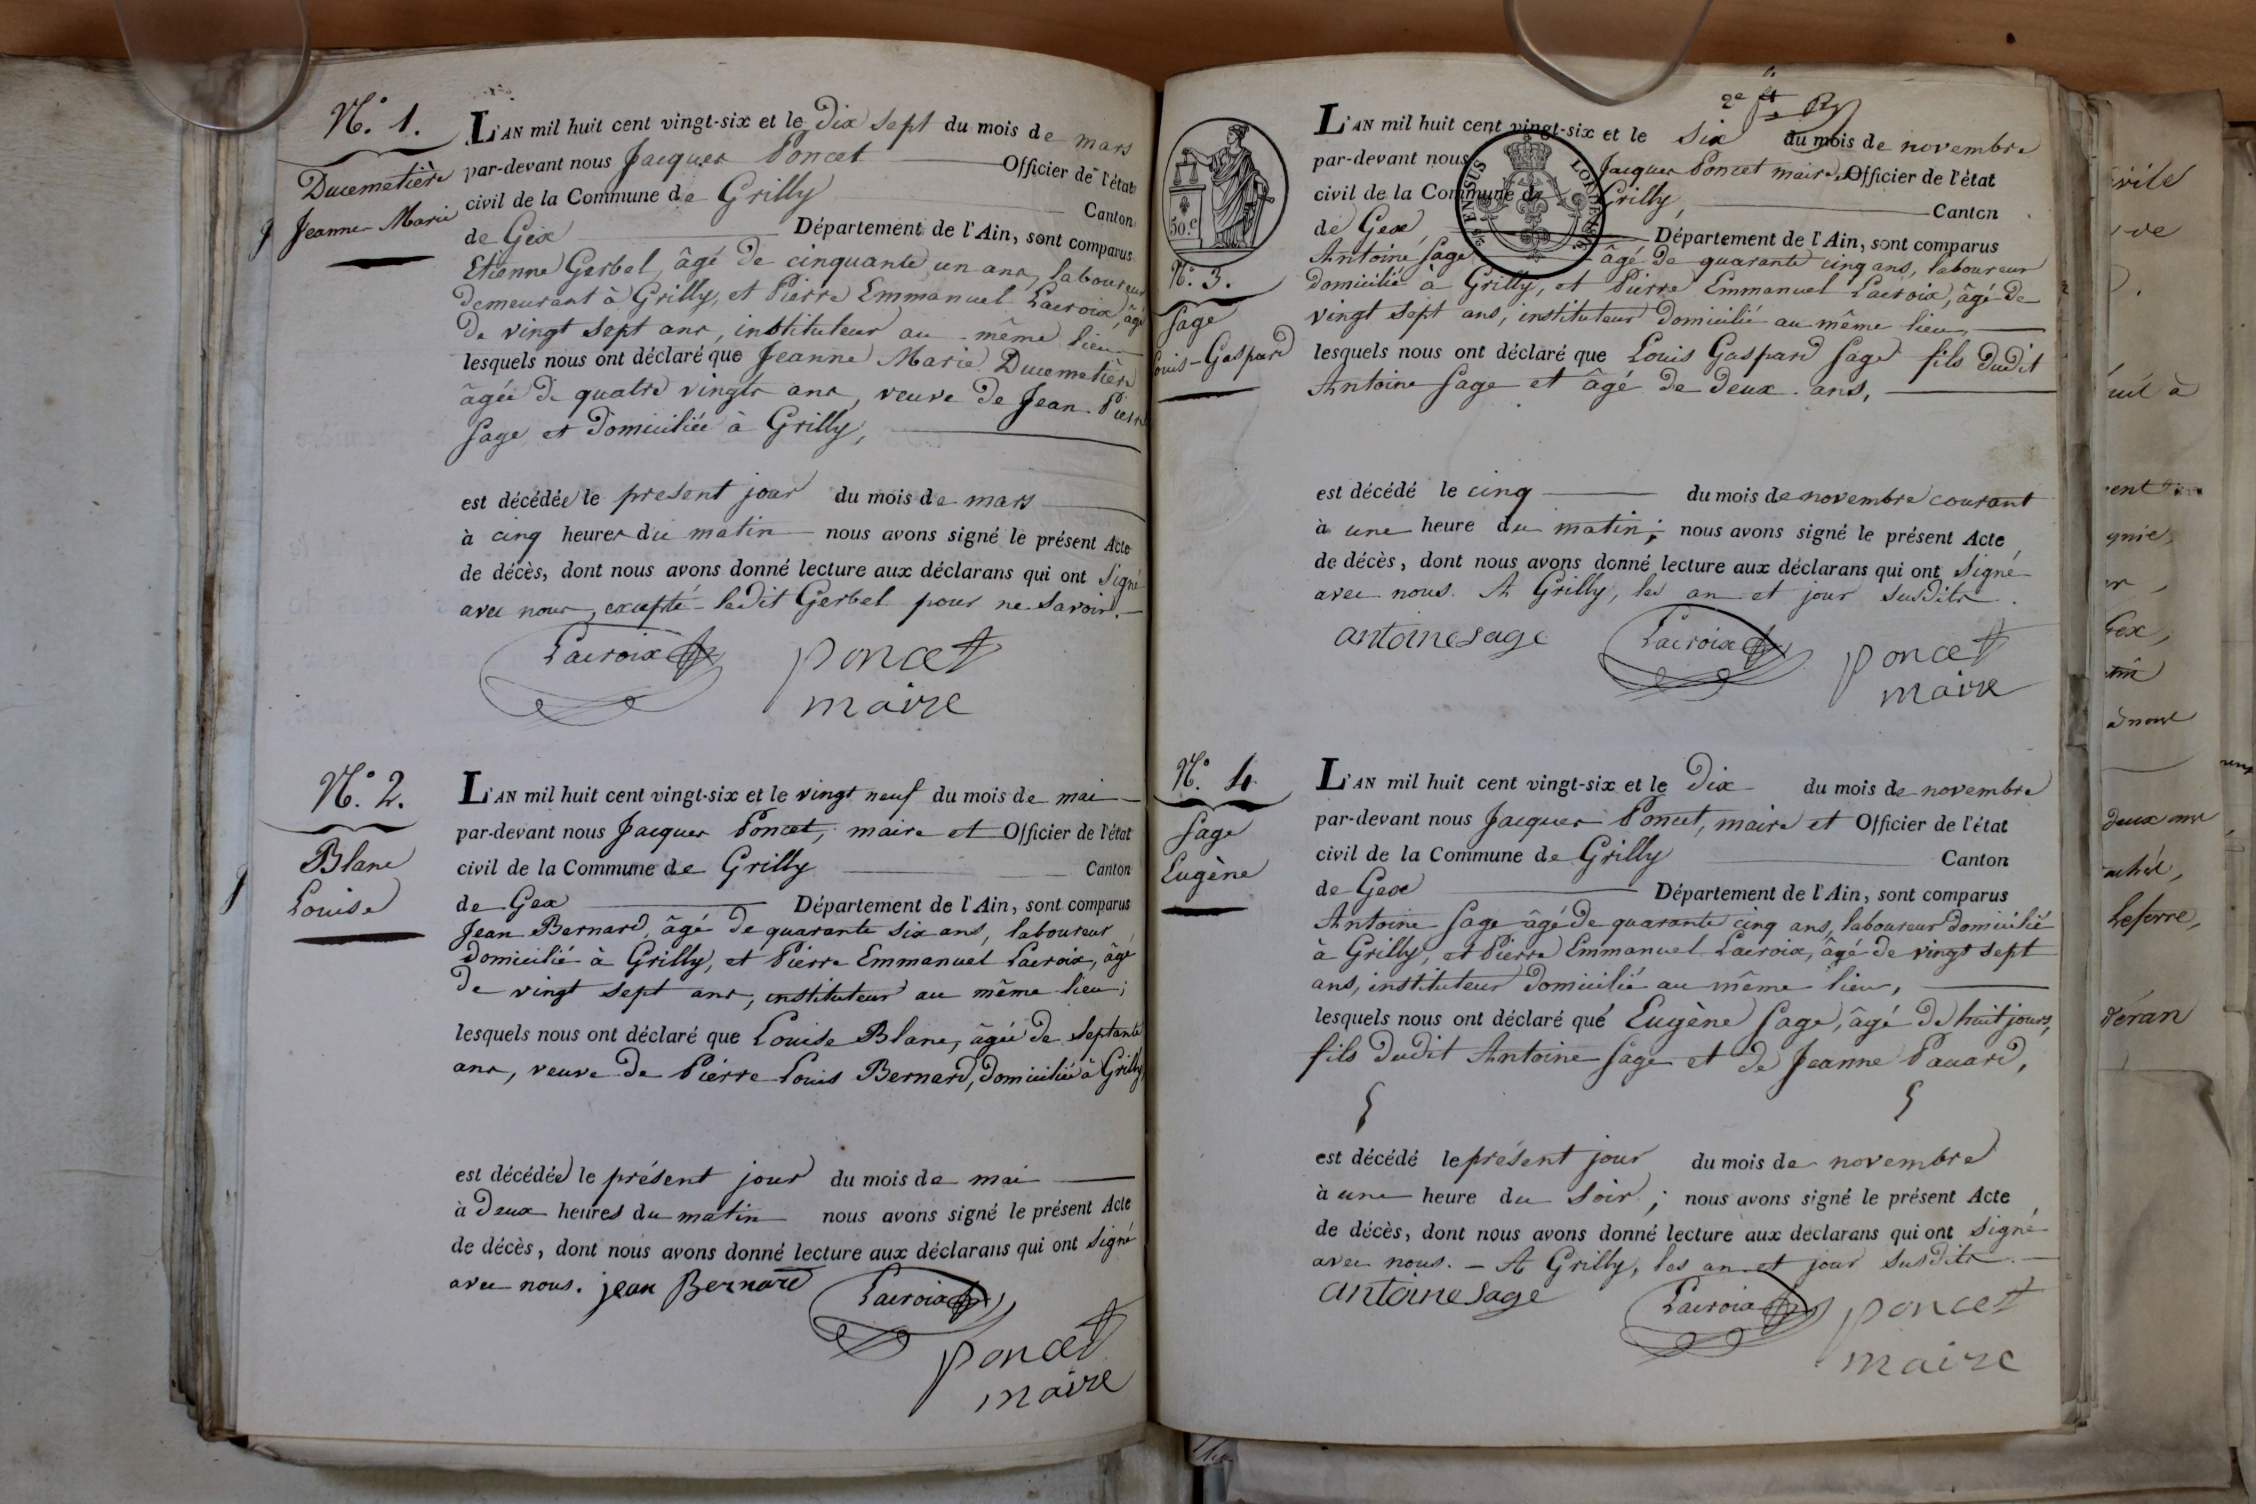 N.° 1.
Ducemetière
Jeanne-Marie
L'AN mil huit cent vingt-six et le dix sept du mois de mars
par-devant nous Jacques Poncet Officier de l'état
civil de la Commune de Grilly Canton
de Gex Département de l'Ain, sont comparus
Etienne Gerbel, âgé de cinquante un ans, laboureur
demeurant à Grilly, et Pierre Emmanuel Lacroix, âgé
de vingt sept ans, instituteur au même lieu
lesquels nous ont déclaré que Jeanne Marie Ducemetière
âgée de quatre vingts ans, veuve de Jean-Pierre
Sage et domiciliée à Grilly,
est décédée le present jour du mois de mars
à cinq heures du matin nous avons signé le présent Acte
de décès, dont nous avons donné lecture aux déclarans qui ont signé
avec nous, excepté ledit Gerbel pour ne savoir.
Lacroix
poncet
maire
N.° 2.
Blanc
Louise
L'AN mil huit cent vingt-six et le vingt neuf du mois de mai
par-devant nous Jacques Poncet, maire et Officier de l'état
civil de la Commune de Grilly Canton
de Gex Département de l'Ain, sont comparus
Jean Bernard, âgé de quarante six ans, laboureur
domicilié à Grilly, et Pierre Emmanuel Lacroix, âgé
de vingt sept ans, instituteur au même lieu;
lesquels nous ont déclaré que Louise Blanc, âgée de septante
ans, veuve de Pierre Louis Bernard, domiciliée à Grilly
est décédée le présent jour du mois de mai
à deux heures du matin nous avons signé le présent Acte
de décès, dont nous avons donné lecture aux déclarans qui ont signé
avec nous. jean Bernard
Lacroix
poncet
maire
2e
50.c
ENSUS
N.° 3.
Sage
Louis-Gaspard
L'AN mil huit cent vingt-six et le six du mois de novembre
par-devant nous Jacques Poncet maire Officier de l'état
civil de la Commune de Grilly, Canton
de Gex, Département de l'Ain, sont comparus
Antoine Sage âgé de quarante cinq ans, laboureur
domicilié à Grilly, et Pierre Emmanuel Lacroix, âgé de
vingt sept ans, instituteur domicilié au même lieu,
lesquels nous ont déclaré que Louis Gaspard Sage fils dudit
Antoine Sage et âgé de deux ans,
est décédé le cinq du mois de novembre courant
à une heure du matin; nous avons signé le présent Acte
de décès, dont nous avons donné lecture aux déclarans qui ont signé
avec nous. A Grilly, les an et jour susdits.
antoine sage
Lacroix
poncet
maire
N.° 4.
Sage
Eugène
L'AN mil huit cent vingt-six et le dix du mois de novembre
par-devant nous Jacques Poncet, maire et Officier de l'état
civil de la Commune de Grilly Canton
de Gex Département de l'Ain, sont comparus
Antoine Sage âgé de quarante cinq ans, laboureur domicilié
à Grilly, et Pierre Emmanuel Lacroix, âgé de vingt sept
ans, instituteur domicilié au même lieu,
lesquels nous ont déclaré que Eugène Sage, âgé de huit jours,
fils dudit Antoine Sage et de Jeanne Pauard,
est décédé le présent jour du mois de novembre
à une heure du soir; nous avons signé le présent Acte
de décès, dont nous avons donné lecture aux déclarans qui ont signé
avec nous. – A Grilly, les an et jour susdits.
antoine sage
Lacroix
poncet
maire